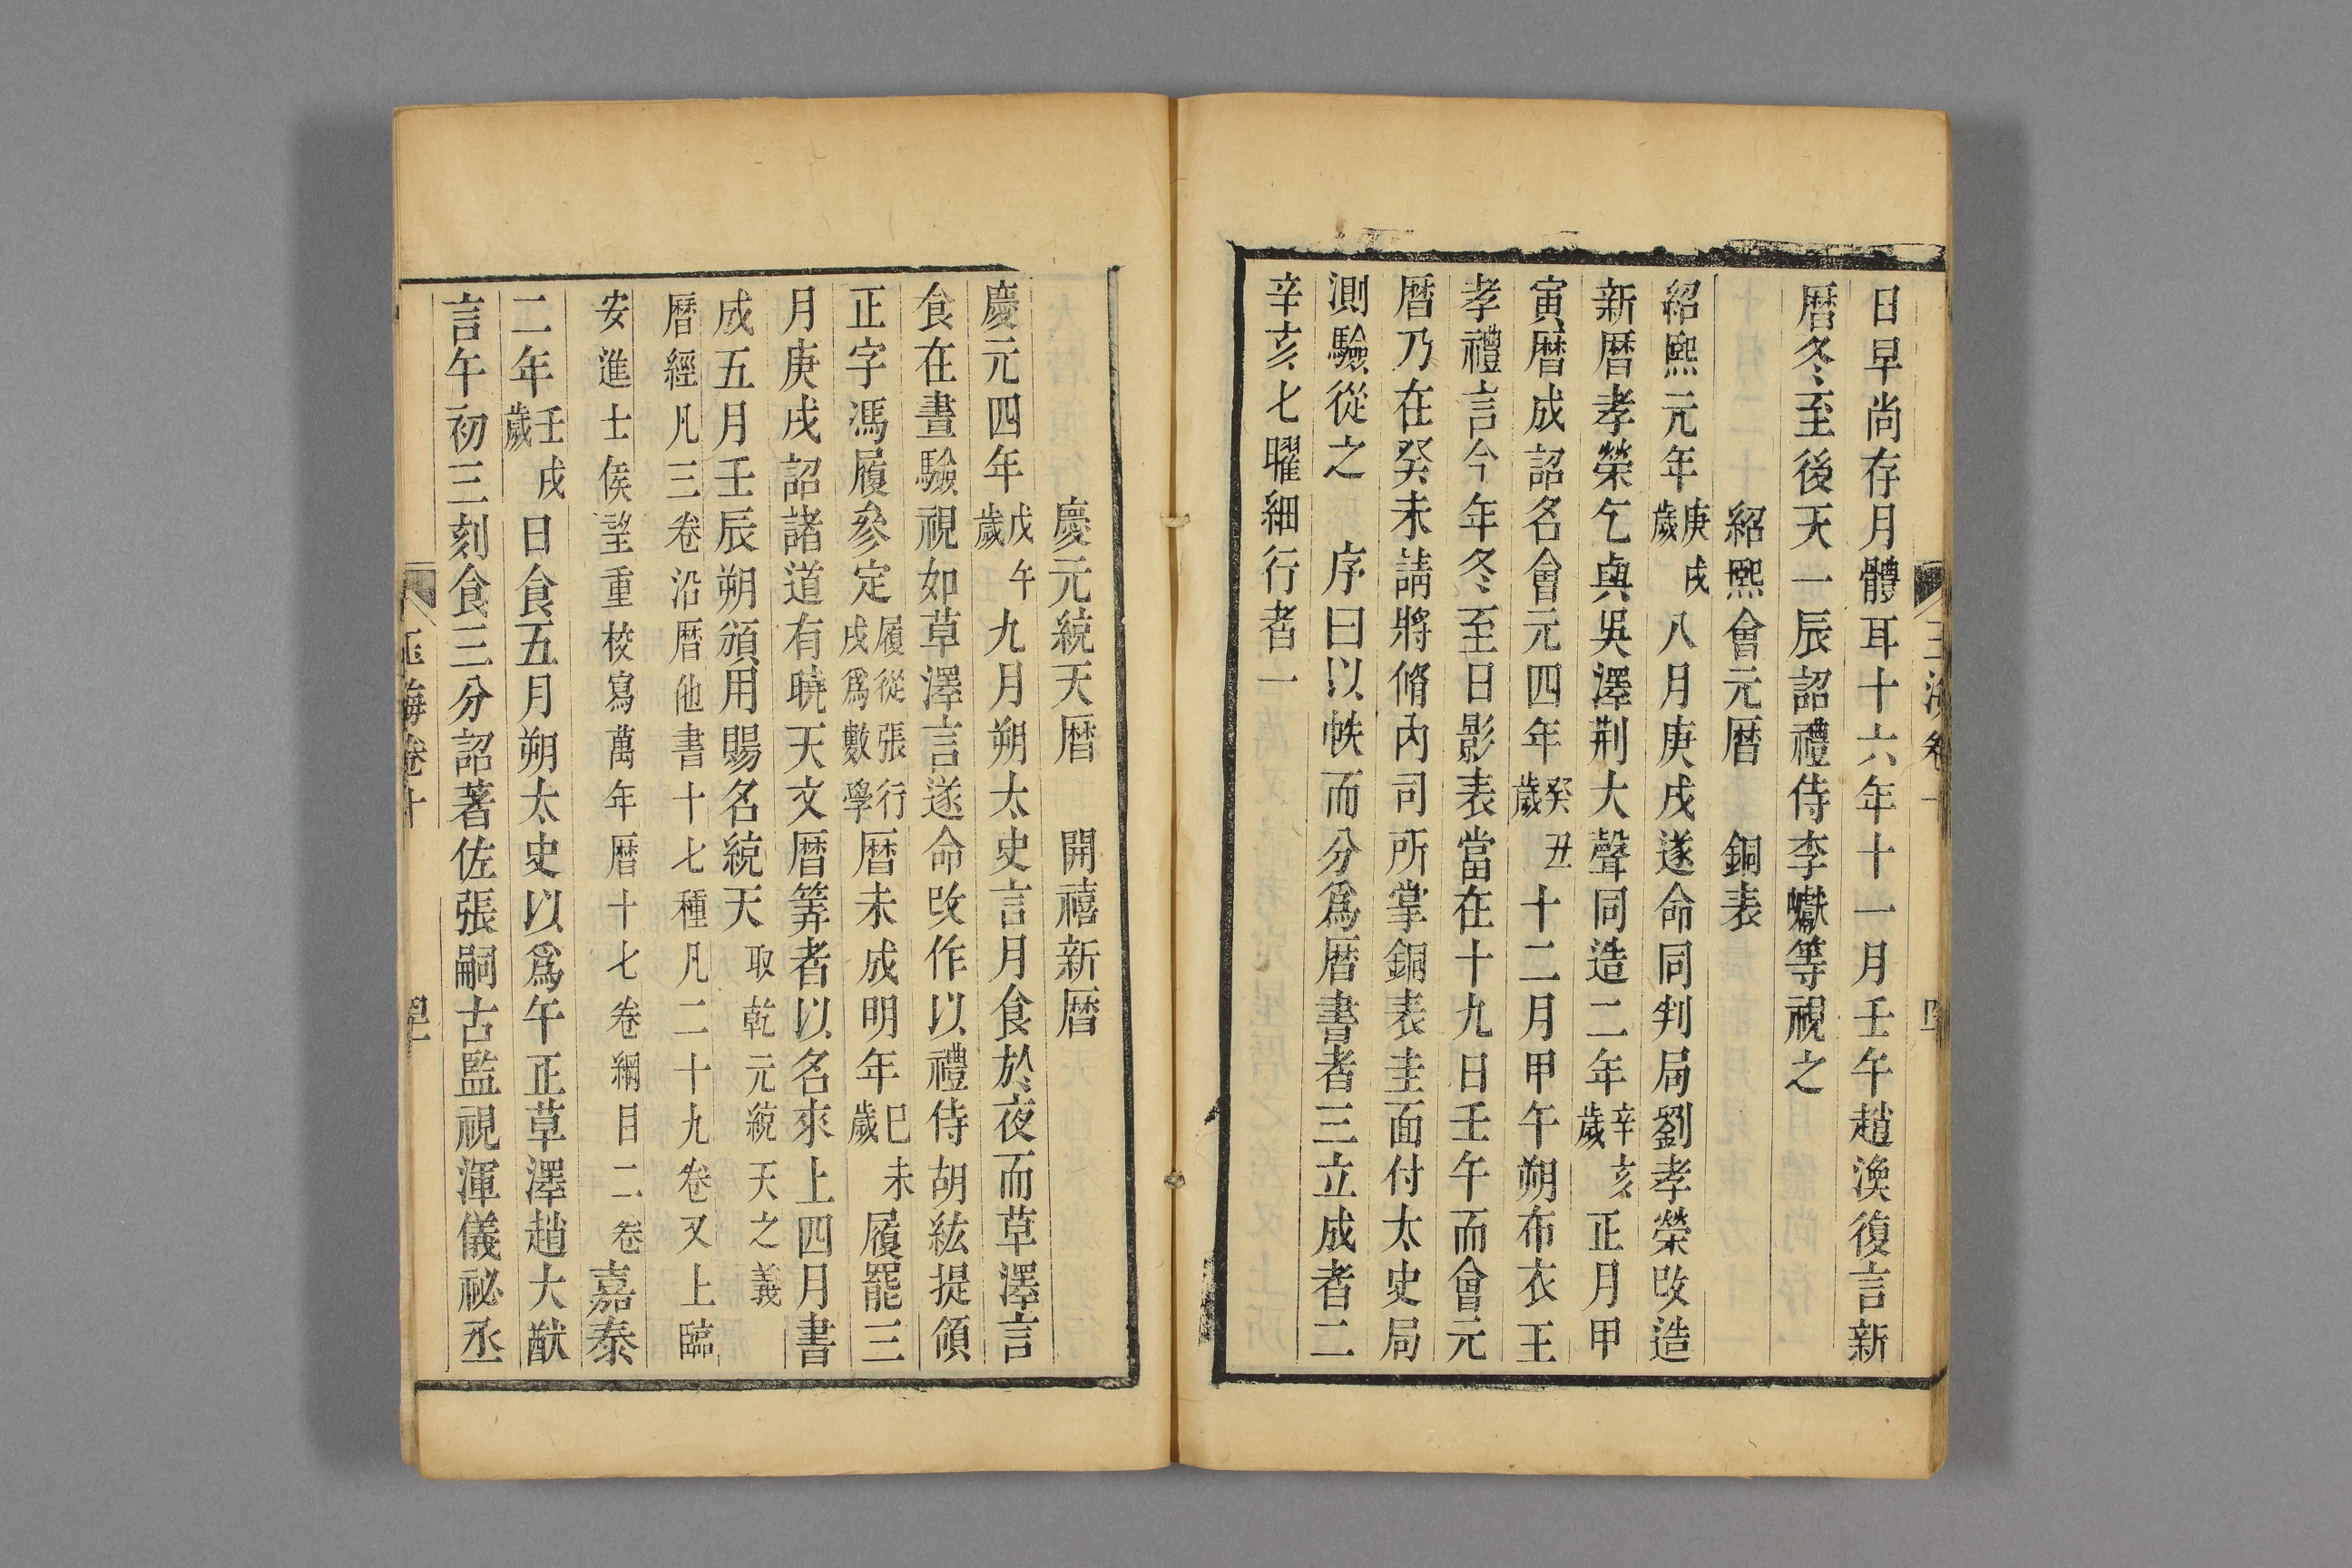 日早尚存月體耳十六年十一月壬午趙渙復言新
暦冬至後天一辰詔禮侍李巘等視之
紹熙會元暦 銅表
紹熙元年歲庚戌八月庚戌遂命同判局劉孝榮改造
新暦孝榮乞與吳澤荆大聲同造二年歲辛亥正月甲
寅暦成詔名會元四年歲癸丑十二月甲午朔布衣王
孝禮言今年冬至日影表當在十九日壬午而會元
暦乃在癸未請將脩內司所掌銅表圭面付太史局
測驗從之 序曰以帙而分爲暦書者三立成者二
辛亥七曜細行者一
慶元統天暦 開禧新暦
慶元四年歲戊午九月朔太史言月食於夜而草澤言
食在晝驗視如草澤言遂命改作以禮侍胡紘提領
正字馮履參定履從張行戌爲數學暦未成明年歲巳未履罷三
月庚戌詔諸道有曉天文暦筭者以名來上四月書
成五月壬辰朔頒用賜名統天取乾元統天之義
暦經凡三卷沿暦他書十七種凡二十九卷又上臨
安進士侯望重校寫萬年暦十七卷綱目二卷嘉泰
二年歲壬戌日食五月朔太史以爲午正草澤趙大猷
言午初三刻食三分詔著佐張嗣古監視渾儀祕丞
玉海卷十